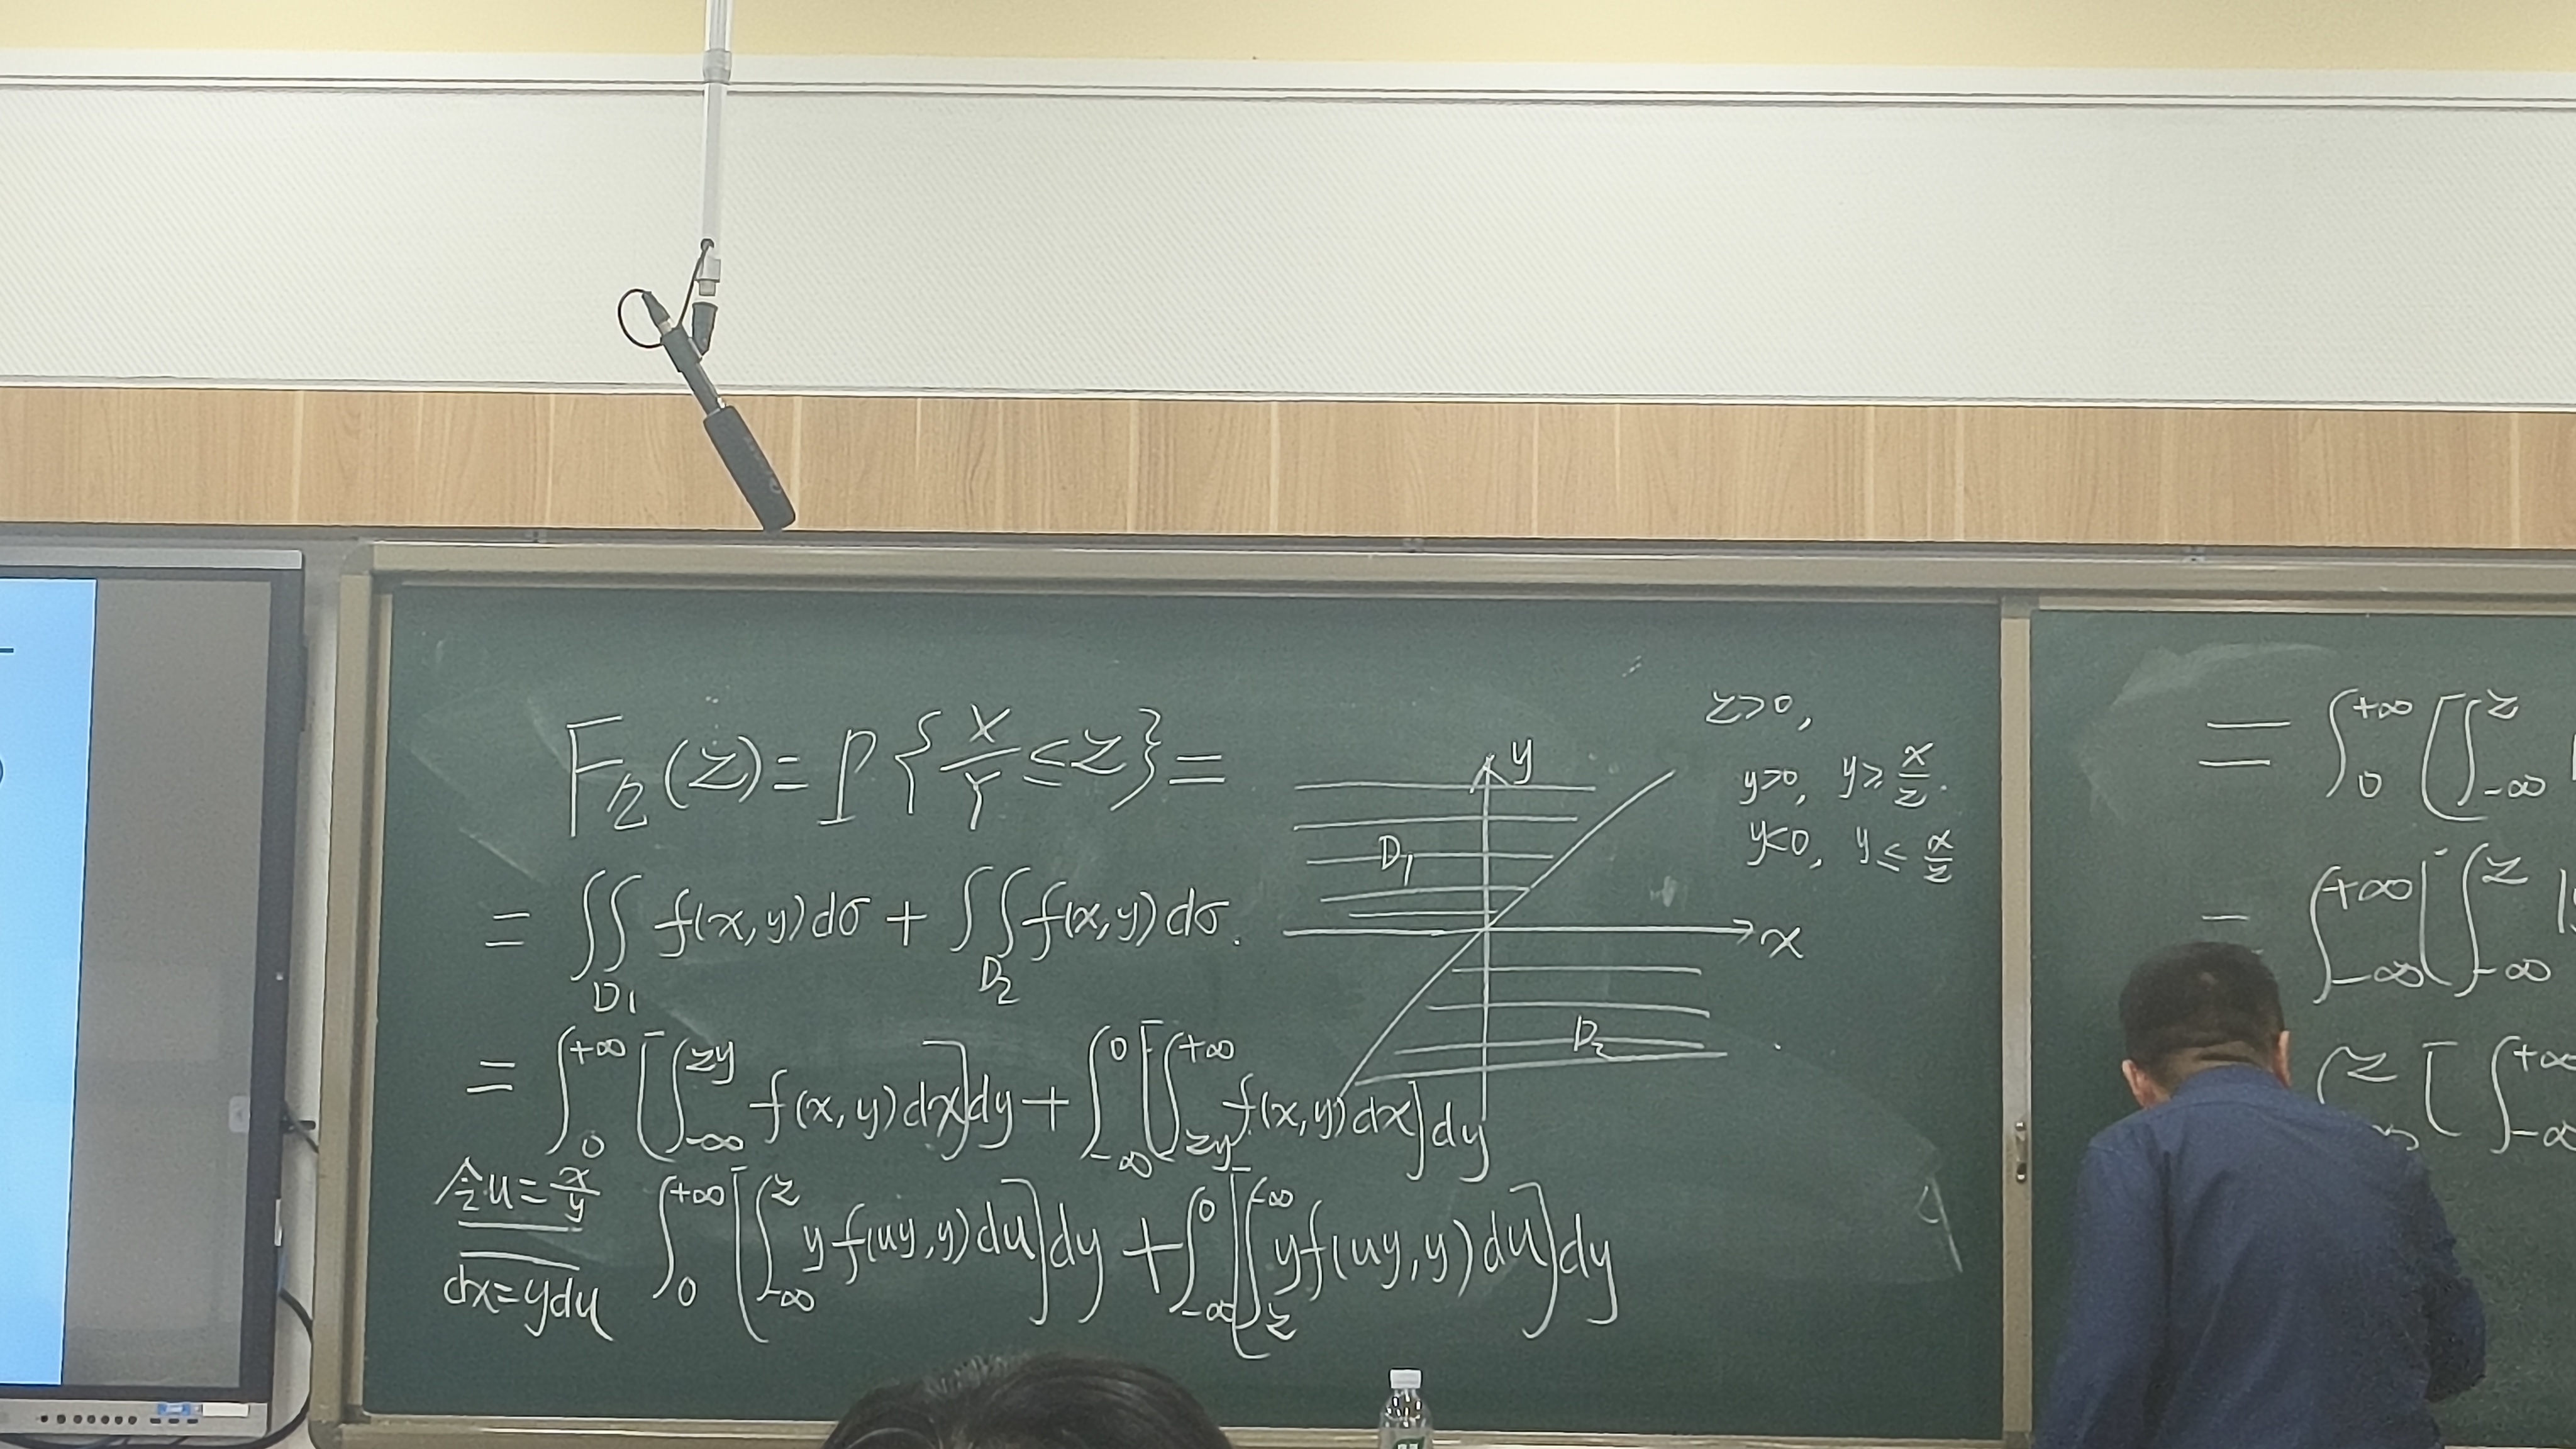 F_Z(z)=P{X/Y≤z}=
=∬_{D1} f(x,y)dσ+∬_{D2} f(x,y)dσ.
=∫_0^{+∞}[∫_{-∞}^{zy} f(x,y)dx]dy+∫_{-∞}^0[∫_{zy}^{+∞} f(x,y)dx]dy
令u=x/y
dx=ydu
∫_0^{+∞}[∫_{-∞}^z yf(uy,y)du]dy+∫_{-∞}^0[∫_z^{-∞} yf(uy,y)du]dy
y
D1
x
D2
z>0,
y>0, y≥x/z.
y<0, y≤x/z
=∫_0^{+∞}[∫_{-∞}^z
=∫_{-∞}^{+∞}[∫_{-∞}^z
∫^z[∫_{-∞}^{+∞}